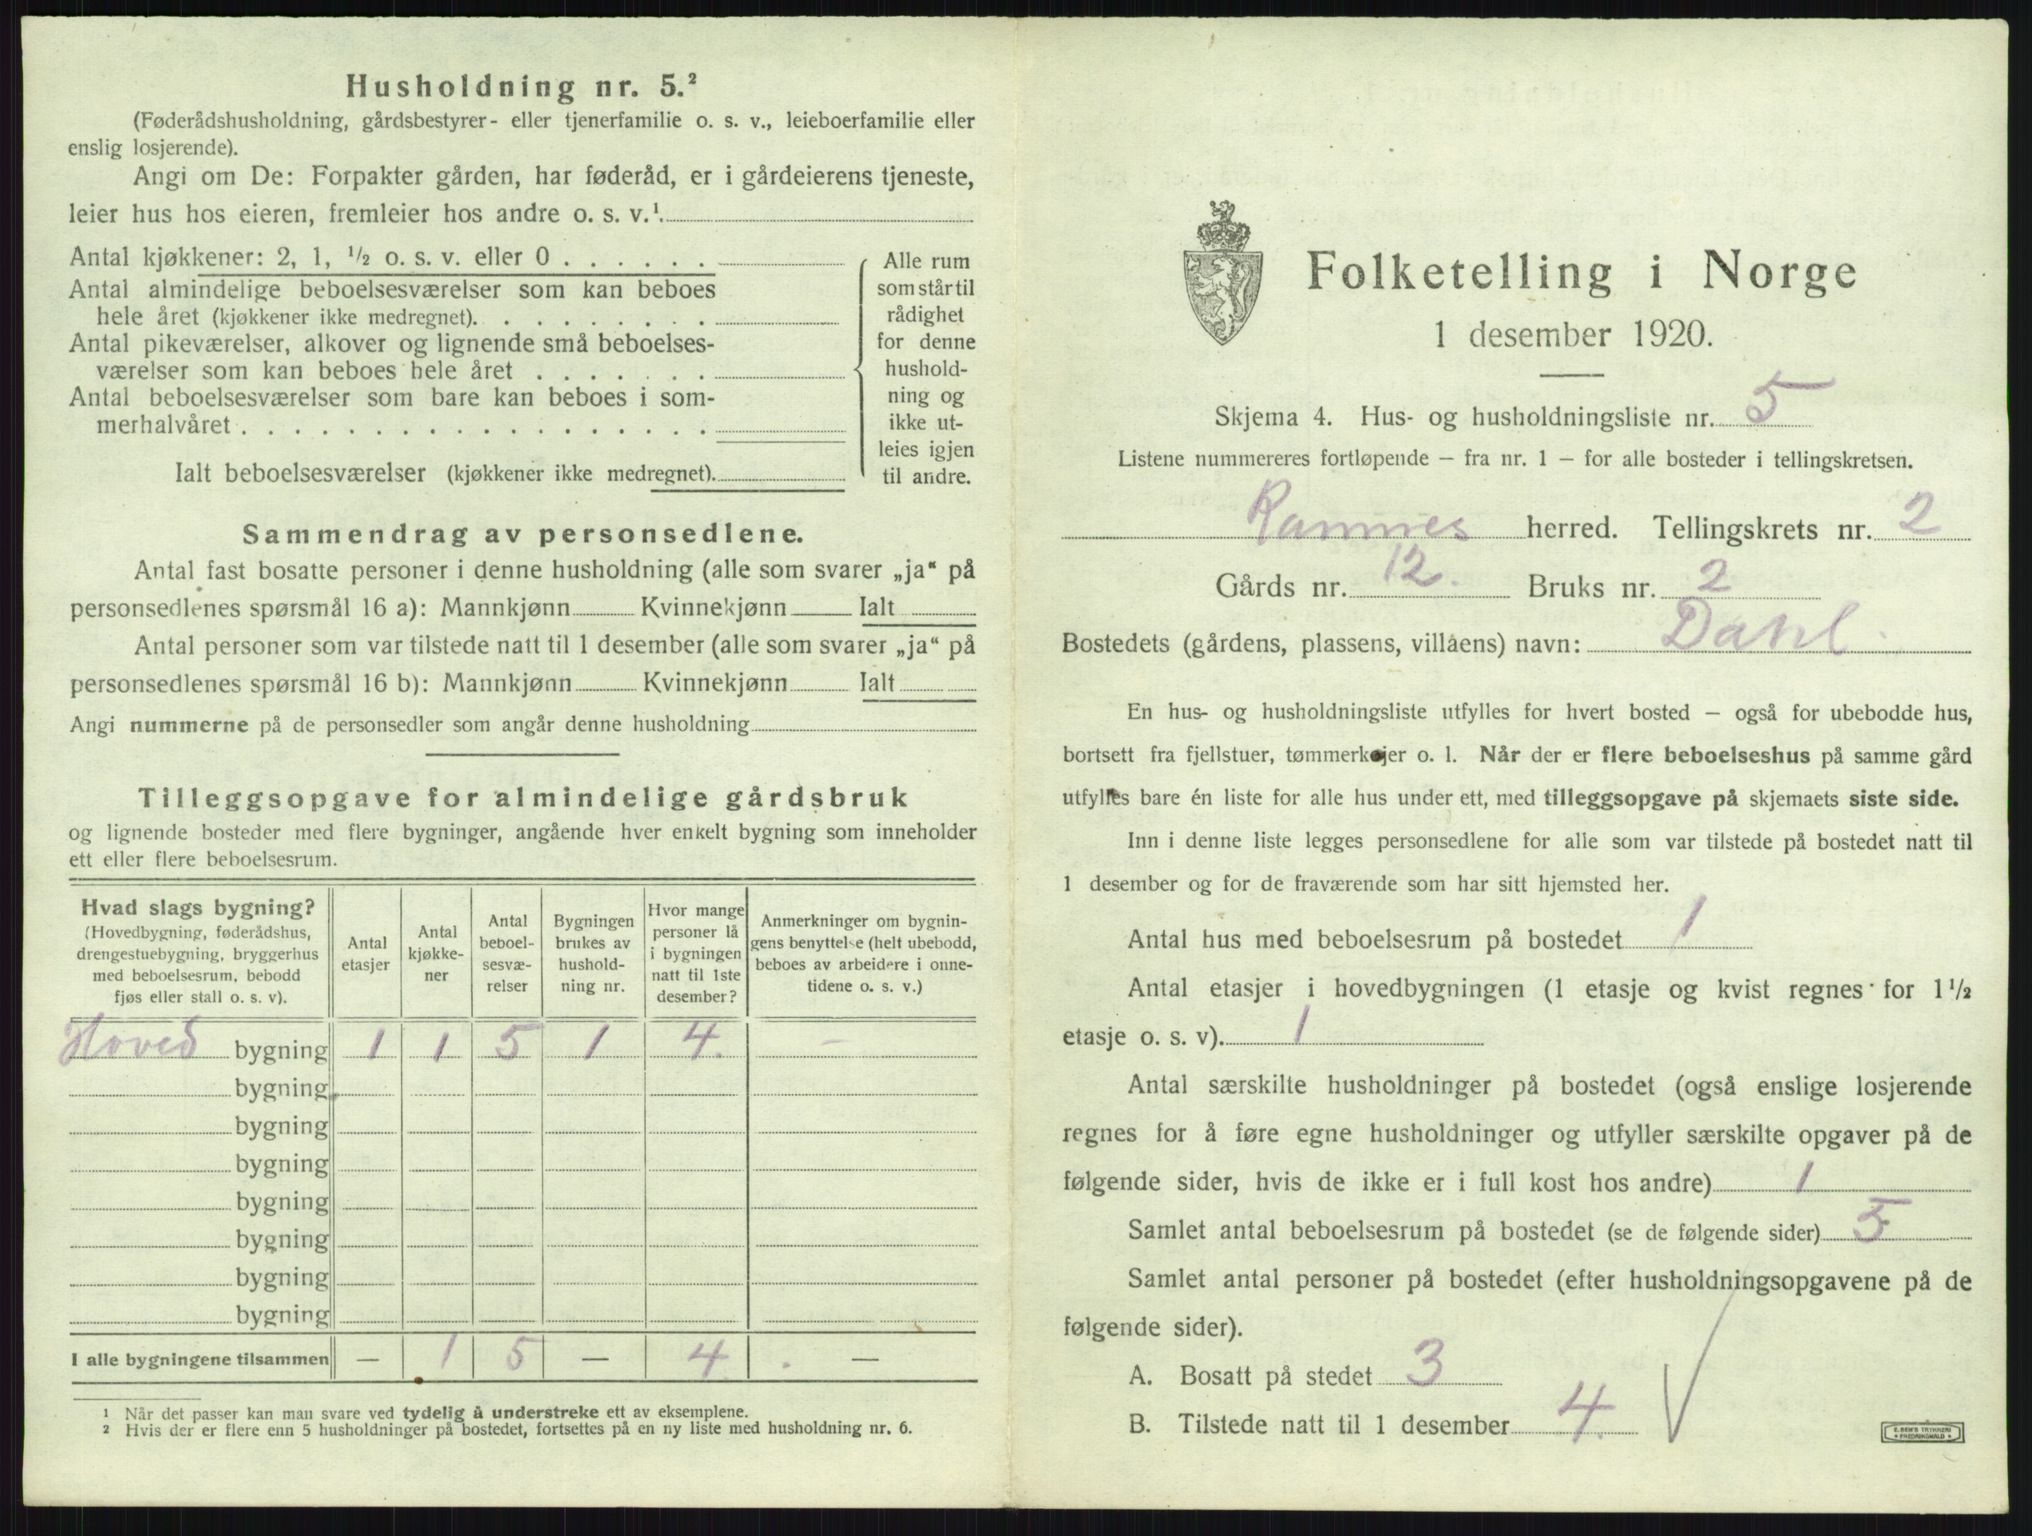 Husholdning nr. 5.²
(Føderådshusholdning, gårdsbestyrer- eller tjenerfamilie o. s. v., leieboerfamilie eller
enslig losjerende).
Angi om De: Forpakter gården, har føderåd, er i gårdeierens tjeneste,
leier hus hos eieren, fremleier hos andre o. s. v.¹
Antal kjøkkener: 2, 1, ½ o. s. v. eller 0 . . . . . .
Antal almindelige beboelsesværelser som kan beboes
hele året (kjøkkener ikke medregnet). . . . . . . . .
Antal pikeværelser, alkover og lignende små beboelses-
værelser som kan beboes hele året . . . . . . .
Antal beboelsesværelser som bare kan beboes i som-
merhalvåret . . . . . . . . . . . . . . . . . .
Ialt beboelsesværelser (kjøkkener ikke medregnet).
Alle rum
som står til
rådighet
for denne
hushold-
ning og
ikke ut-
leies igjen
til andre.
Sammendrag av personsedlene.
Antal fast bosatte personer i denne husholdning (alle som svarer „ja“ på
personsedlenes spørsmål 16 a): Mannkjønn Kvinnekjønn Ialt
Antal personer som var tilstede natt til 1 desember (alle som svarer „ja“ på
personsedlenes spørsmål 16 b): Mannkjønn Kvinnekjønn Ialt
Angi nummerne på de personsedler som angår denne husholdning
Tilleggsopgave for almindelige gårdsbruk
og lignende bosteder med flere bygninger, angående hver enkelt bygning som inneholder
ett eller flere beboelsesrum.
Hvad slags bygning?
(Hovedbygning, føderådshus,
drengestuebygning, bryggerhus
med beboelsesrum, bebodd
fjøs eller stall o. s. v).
Antal
etasjer
Antal
kjøkke-
ner
Antal
beboel-
sesvæ-
relser
Bygningen
brukes av
hushold-
ning nr.
Hvor mange
personer lå
i bygningen
natt til 1ste
desember?
Anmerkninger om bygnin-
gens benyttelse (helt ubebodd,
beboes av arbeidere i onne-
tidene o. s. v.)
Hoved bygning 1 1 5 1 4. –
bygning
bygning
bygning
bygning
bygning
bygning
bygning
I alle bygningene tilsammen — 1 5 — 4. —
¹ Når det passer kan man svare ved tydelig å understreke ett av eksemplene.
² Hvis der er flere enn 5 husholdninger på bostedet, fortsettes på en ny liste med husholdning nr. 6.
Folketelling i Norge
1 desember 1920.
Skjema 4. Hus- og husholdningsliste nr. 5
Listene nummereres fortløpende – fra nr. 1 – for alle bosteder i tellingskretsen.
Ramnes herred. Tellingskrets nr. 2
Gårds nr. 12. Bruks nr. 2
Bostedets (gårdens, plassens, villaens) navn: Dahl.
En hus- og husholdningsliste utfylles for hvert bosted – også for ubebodde hus,
bortsett fra fjellstuer, tømmerkojer o. l. Når der er flere beboelseshus på samme gård
utfylles bare én liste for alle hus under ett, med tilleggsopgave på skjemaets siste side.
Inn i denne liste legges personsedlene for alle som var tilstede på bostedet natt til
1 desember og for de fraværende som har sitt hjemsted her.
Antal hus med beboelsesrum på bostedet 1
Antal etasjer i hovedbygningen (1 etasje og kvist regnes for 1½
etasje o. s. v). 1
Antal særskilte husholdninger på bostedet (også enslige losjerende
regnes for å føre egne husholdninger og utfyller særskilte opgaver på de
følgende sider, hvis de ikke er i full kost hos andre) 1
Samlet antal beboelsesrum på bostedet (se de følgende sider) 5
Samlet antal personer på bostedet (efter husholdningsopgavene på de
følgende sider).
A. Bosatt på stedet 3
B. Tilstede natt til 1 desember 4.
E. SEM'S TRYKKERI
FREDRIKSHALD